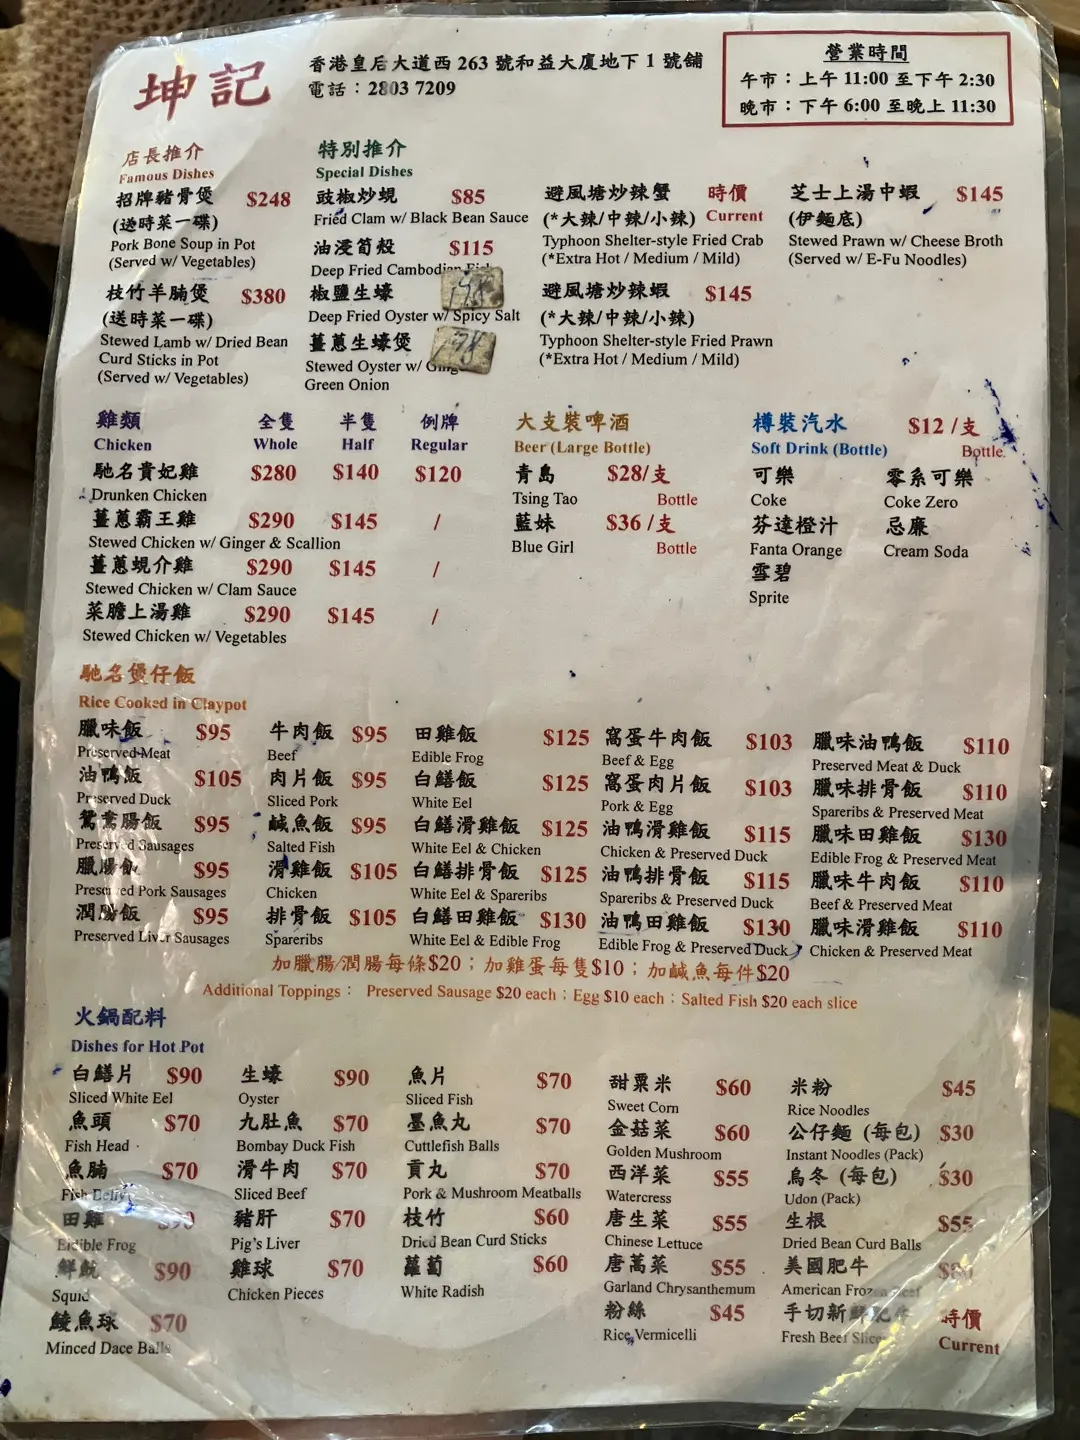 坤記
香港皇后大道西 263 號和益大廈地下 1 號舖
電話：2803 7209
營業時間
午市：上午 11:00 至下午 2:30
晚市：下午 6:00 至晚上 11:30
店長推介
Famous Dishes
招牌豬骨煲 $248
(送時菜一碟)
Pork Bone Soup in Pot
(Served w/ Vegetables)
枝竹羊腩煲 $380
(送時菜一碟)
Stewed Lamb w/ Dried Bean
Curd Sticks in Pot
(Served w/ Vegetables)
特別推介
Special Dishes
豉椒炒蜆 $85
Fried Clam w/ Black Bean Sauce
油浸筍殼 $115
Deep Fried Cambodian Fish
椒鹽生蠔 198
Deep Fried Oyster w/ Spicy Salt
薑蔥生蠔煲 198
Stewed Oyster w/
Green Onion
避風塘炒辣蟹 時價
(*大辣/中辣/小辣) Current
Typhoon Shelter-style Fried Crab
(*Extra Hot / Medium / Mild)
避風塘炒辣蝦 $145
(*大辣/中辣/小辣)
Typhoon Shelter-style Fried Prawn
(*Extra Hot / Medium / Mild)
芝士上湯中蝦 $145
(伊麵底)
Stewed Prawn w/ Cheese Broth
(Served w/ E-Fu Noodles)
雞類 全隻 半隻 例牌
Chicken Whole Half Regular
馳名貴妃雞 $280 $140 $120
Drunken Chicken
薑蔥霸王雞 $290 $145 /
Stewed Chicken w/ Ginger & Scallion
薑蔥蜆介雞 $290 $145 /
Stewed Chicken w/ Clam Sauce
菜膽上湯雞 $290 $145 /
Stewed Chicken w/ Vegetables
大支裝啤酒
Beer (Large Bottle)
青島 $28/支
Tsing Tao Bottle
藍妹 $36 /支
Blue Girl Bottle
樽裝汽水 $12 /支
Soft Drink (Bottle) Bottle
可樂 零系可樂
Coke Coke Zero
芬達橙汁 忌廉
Fanta Orange Cream Soda
雪碧
Sprite
馳名煲仔飯
Rice Cooked in Claypot
臘味飯 $95
Preserved Meat
油鴨飯 $105
Preserved Duck
鴛鴦腸飯 $95
Preserved Sausages
臘腸飯 $95
Preserved Pork Sausages
潤腸飯 $95
Preserved Liver Sausages
牛肉飯 $95
Beef
肉片飯 $95
Sliced Pork
鹹魚飯 $95
Salted Fish
滑雞飯 $105
Chicken
排骨飯 $105
Spareribs
田雞飯 $125
Edible Frog
白鱔飯 $125
White Eel
白鱔滑雞飯 $125
White Eel & Chicken
白鱔排骨飯 $125
White Eel & Spareribs
白鱔田雞飯 $130
White Eel & Edible Frog
窩蛋牛肉飯 $103
Beef & Egg
窩蛋肉片飯 $103
Pork & Egg
油鴨滑雞飯 $115
Chicken & Preserved Duck
油鴨排骨飯 $115
Spareribs & Preserved Duck
油鴨田雞飯 $130
Edible Frog & Preserved Duck
臘味油鴨飯 $110
Preserved Meat & Duck
臘味排骨飯 $110
Spareribs & Preserved Meat
臘味田雞飯 $130
Edible Frog & Preserved Meat
臘味牛肉飯 $110
Beef & Preserved Meat
臘味滑雞飯 $110
Chicken & Preserved Meat
加臘腸/潤腸每條$20；加雞蛋每隻$10；加鹹魚每件$20
Additional Toppings： Preserved Sausage $20 each；Egg $10 each；Salted Fish $20 each slice
火鍋配料
Dishes for Hot Pot
白鱔片 $90
Sliced White Eel
魚頭 $70
Fish Head
魚腩 $70
Fish Belly
田雞 $90
Eidible Frog
鮮魷 $90
Squid
鯪魚球 $70
Minced Dace Balls
生蠔 $90
Oyster
九肚魚 $70
Bombay Duck Fish
滑牛肉 $70
Sliced Beef
豬肝 $70
Pig's Liver
雞球 $70
Chicken Pieces
魚片 $70
Sliced Fish
墨魚丸 $70
Cuttlefish Balls
貢丸 $70
Pork & Mushroom Meatballs
枝竹 $60
Dried Bean Curd Sticks
蘿蔔 $60
White Radish
甜粟米 $60
Sweet Corn
金菇菜 $60
Golden Mushroom
西洋菜 $55
Watercress
唐生菜 $55
Chinese Lettuce
唐蒿菜 $55
Garland Chrysanthemum
粉絲 $45
Rice Vermicelli
米粉 $45
Rice Noodles
公仔麵 (每包) $30
Instant Noodles (Pack)
烏冬 (每包) $30
Udon (Pack)
生根 $55
Dried Bean Curd Balls
美國肥牛
American Frozen Beef
手切新鮮肥牛 時價
Fresh Beef Slice Current